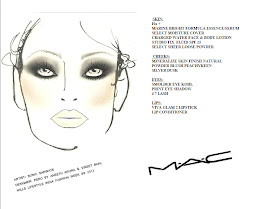 SKIN:
Fix +
MARINE BRIGHT FORMULA ESSENCE/SERUM
SELECT MOISTURE COVER
CHARGED WATER FACE & BODY LOTION
STUDIO FIX FLUID SPF 15
SELECT SHEER LOOSE POWDER
CHEEKS:
MINERALIZE SKIN FINISH NATURAL
POWDER BLUSH PEACHYKEEN
SILVER DUSK
EYES:
SMOLDER EYE KOHL
PRINT EYE SHADOW
# 7 LASH
LIPS:
VIVA GLAM 2 LIPSTICK
LIP CONDITIONER
MAC
ARTIST:
DESIGNER:
WILLS LIFESTYLE INDIA FASHION WEEK SS 2011